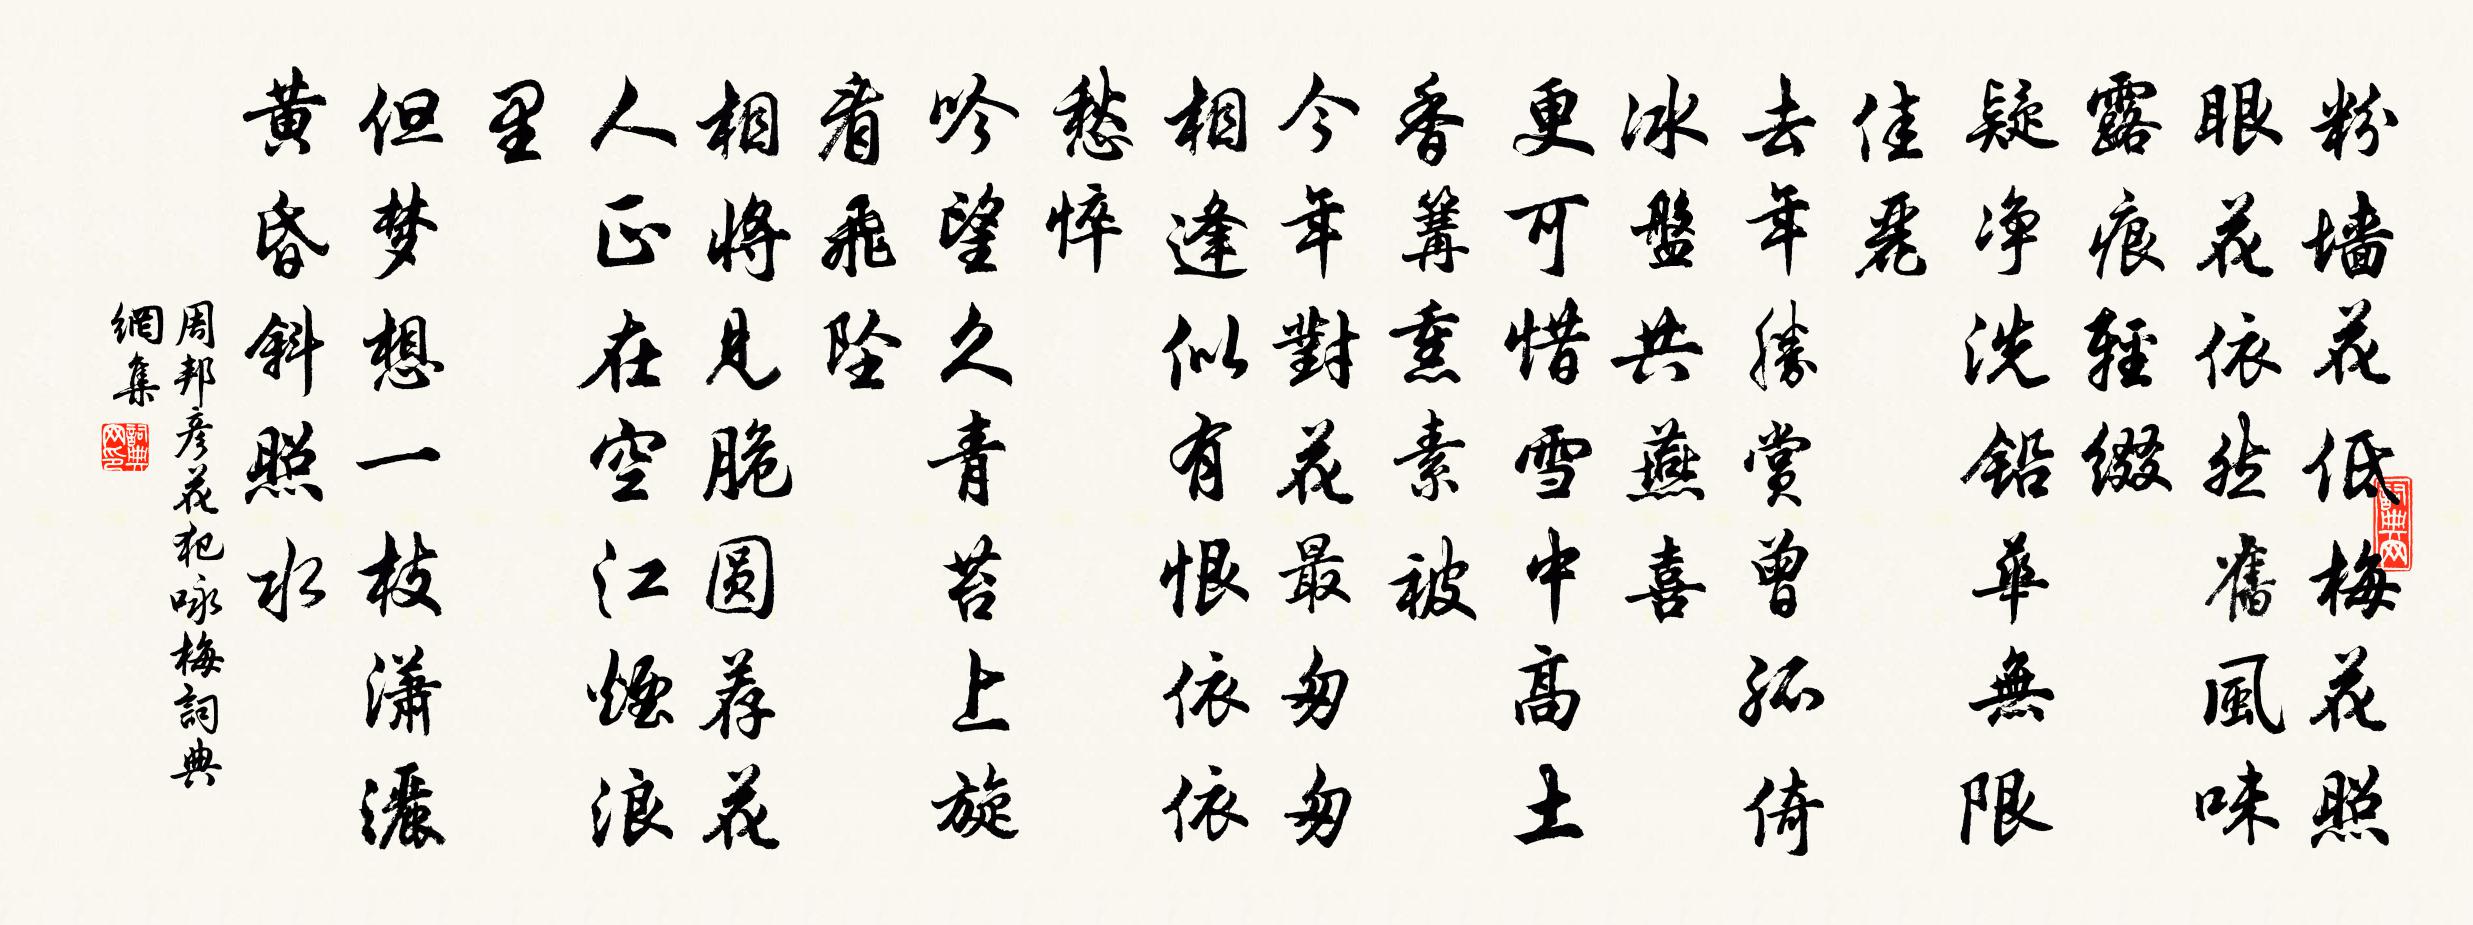 粉墙花低梅花照
眼花依然舊風味
露痕輕綴
疑净洗铅華無限
佳麗
去年勝赏曾孤倚
冰盤共燕喜
更可惜雪中高土
香篝熏素被
今年對花最匆匆
相逢似有恨依依
愁悴
吟望久青苔上旋
看飛坠
相將見脆圆荐花
人正在空江煙浪
里
但梦想一枝潇灑
黄昏斜照水
周邦彦花犯咏梅詞典
網集
詞典网
詞典网印